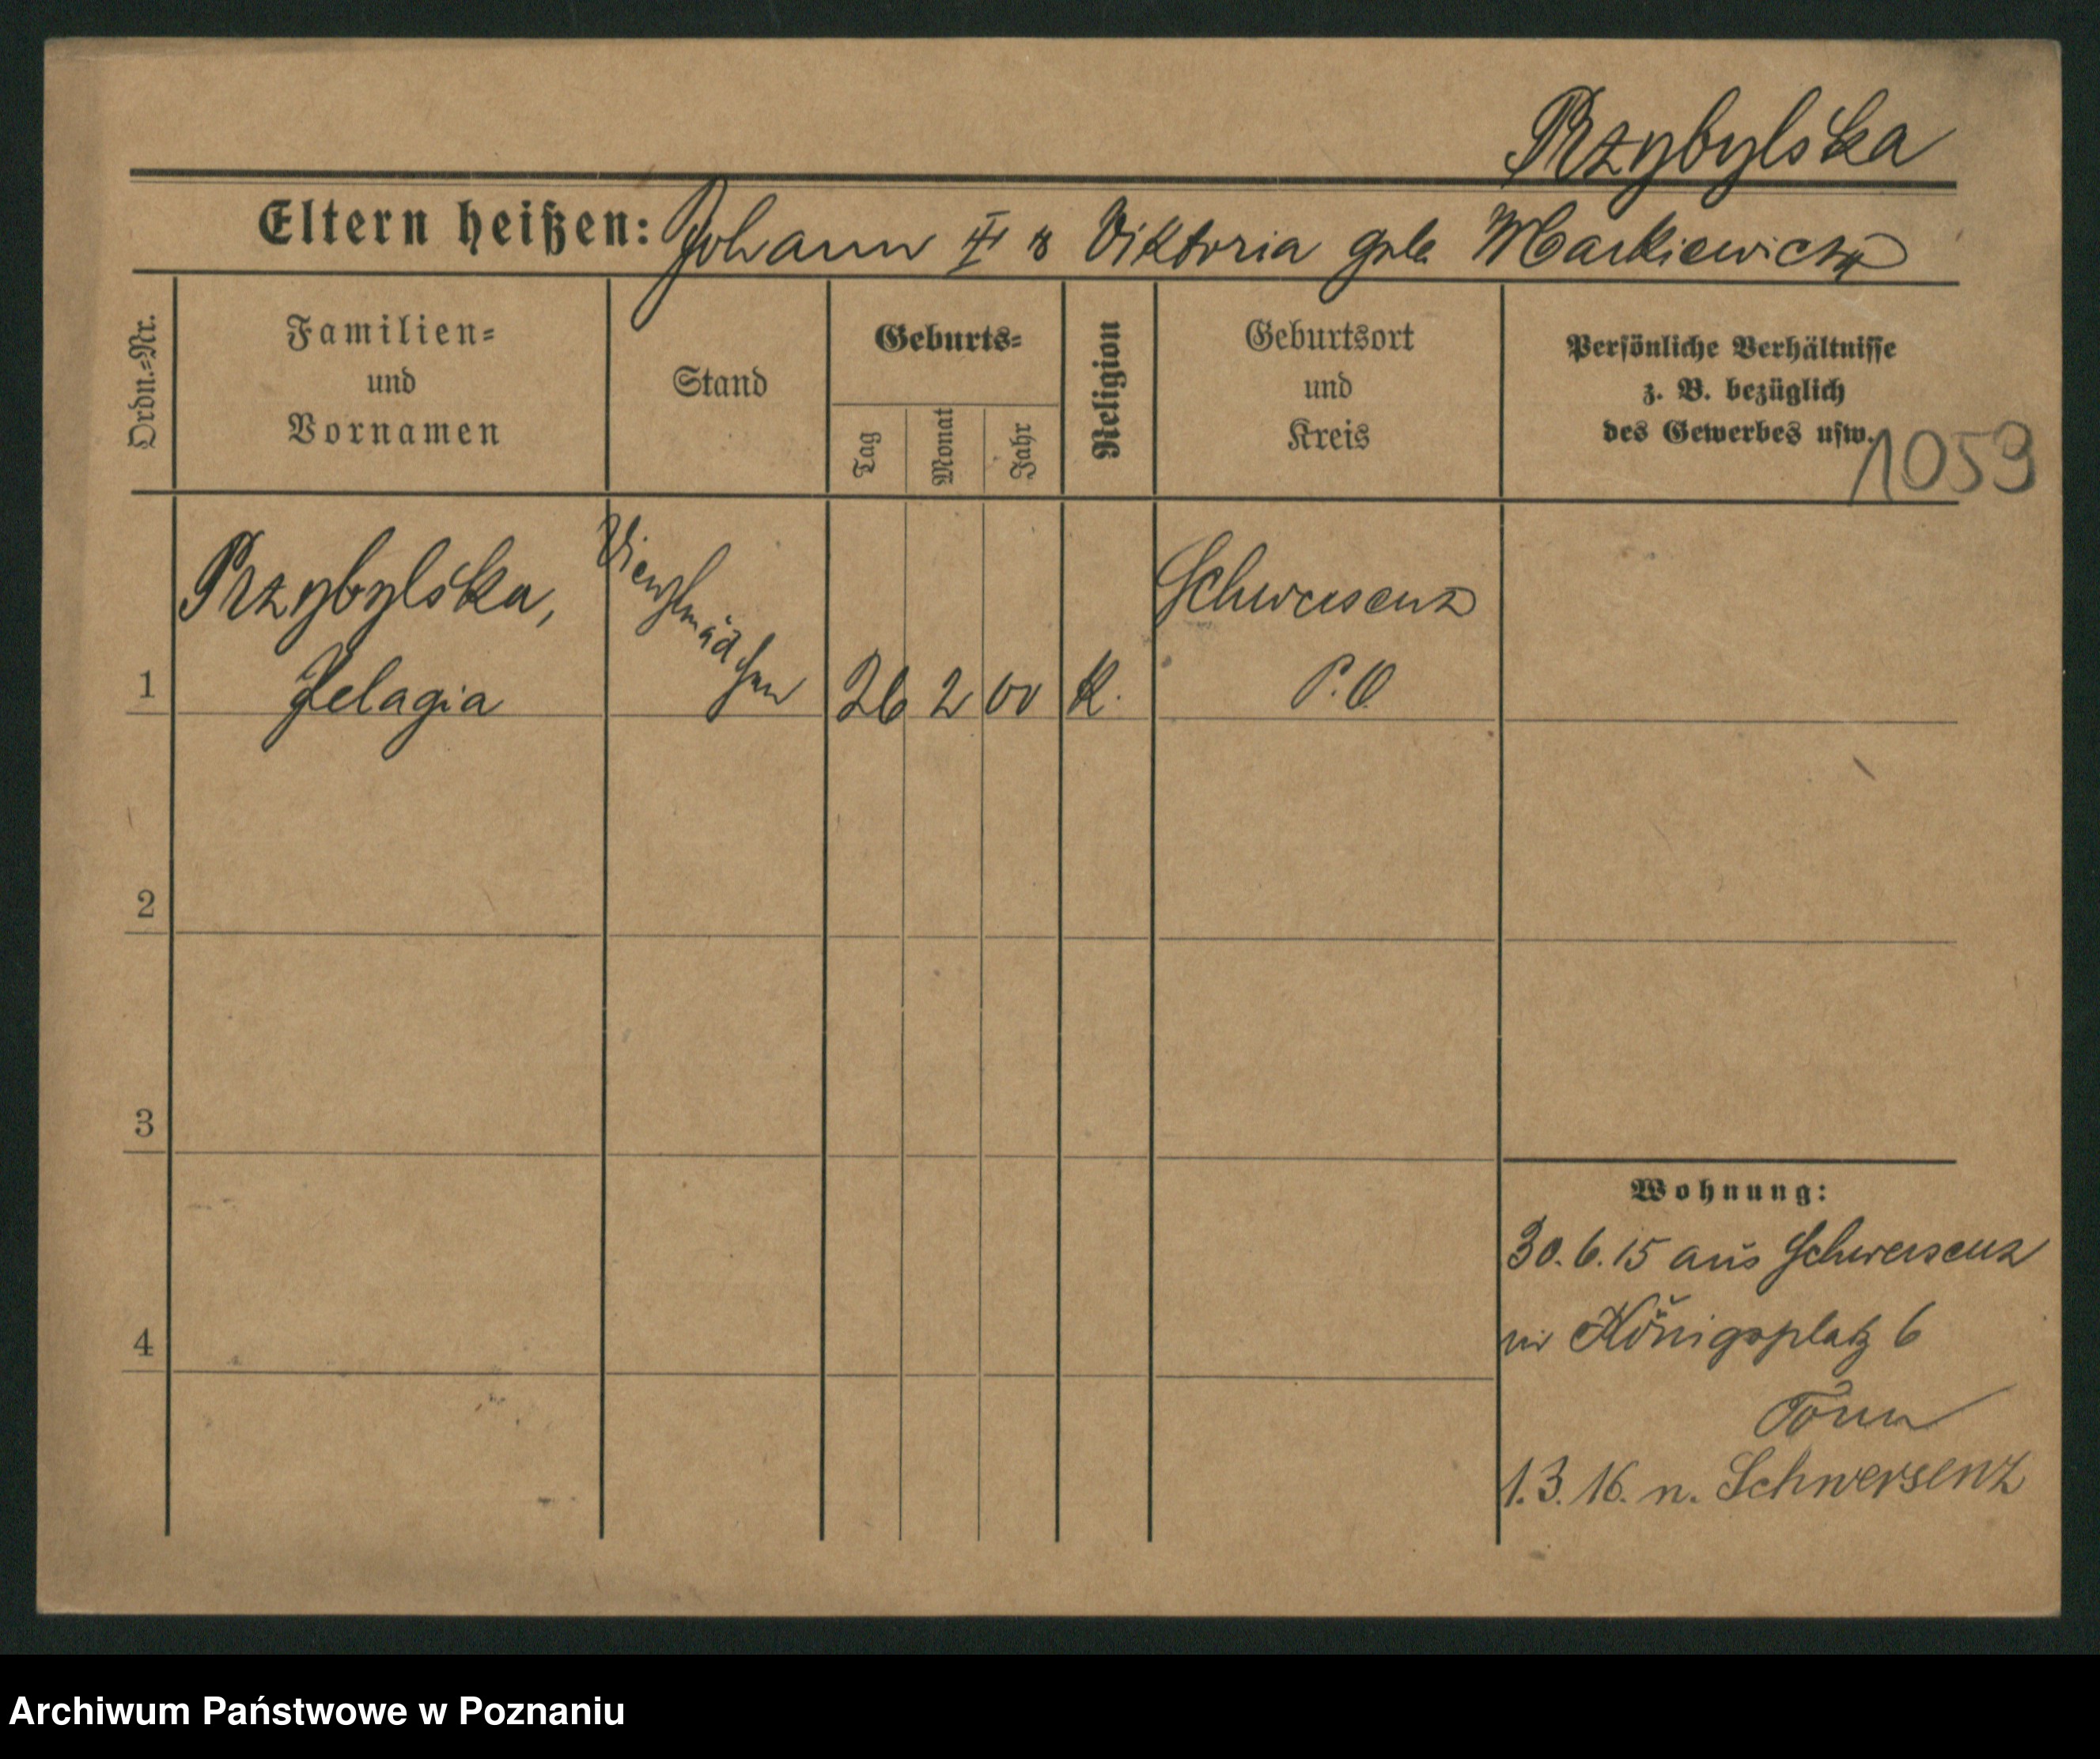 Przybylska
Eltern heißen: Johann & Viktoria geb. Markiewicz
Ordn.-Nr.
Familien-
und
Vornamen
Stand
Geburts-
Tag
Monat
Jahr
Religion
Geburtsort
und
Kreis
Persönliche Verhältnisse
z. B. bezüglich
des Gewerbes usw.
1059
1
Przybylska,
Pelagia
Dienstmädchen
26 2 00
K.
Schwersenz
P. O
2
3
4
Wohnung:
30. 6. 15 aus Schwersenz
Königsplatz 6
1. 3. 16. n. Schwersenz
Archiwum Państwowe w Poznaniu